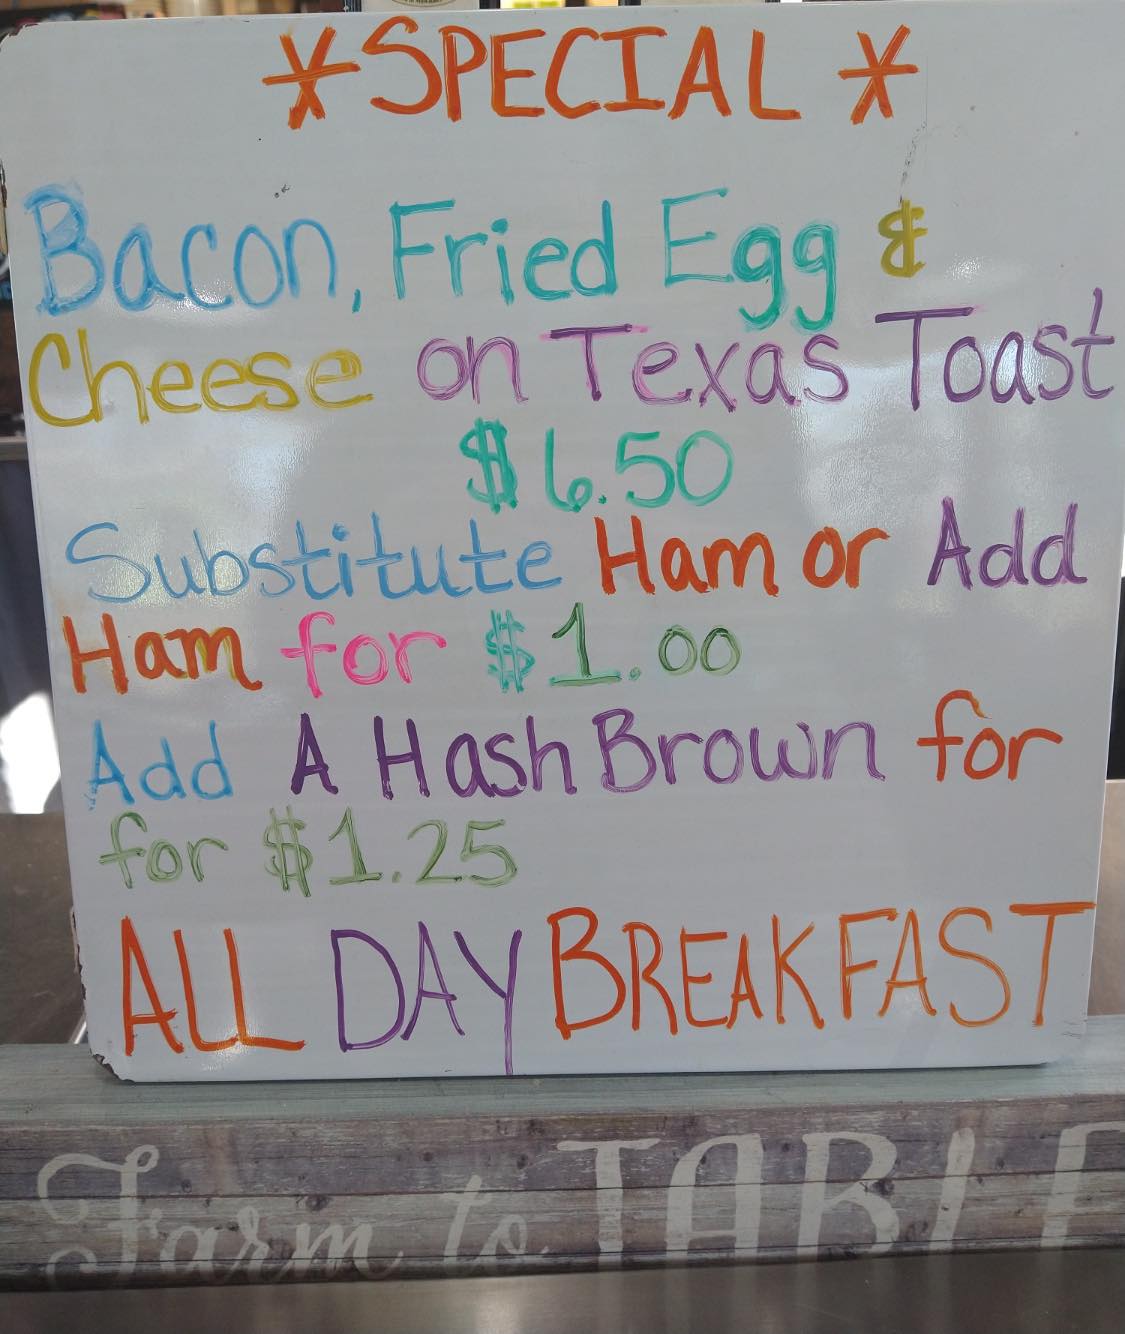 *SPECIAL*
Bacon, Fried Egg &
Cheese on Texas Toast
$6.50
Substitute Ham or Add
Ham for $1.00
Add A Hash Brown for
for $1.25
ALL DAY BREAKFAST
Farm to TABLE